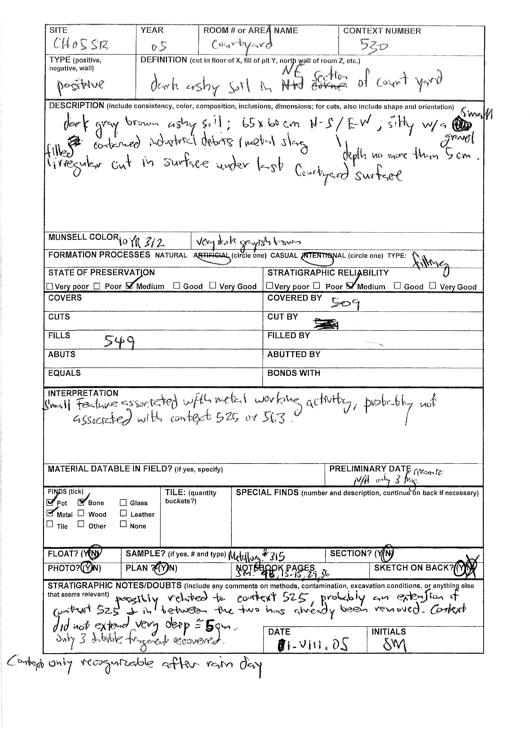 SITE YEAR ROOM # or AREA NAME CONTEXT NUMBER
CH05SR 05 Courtyard 530
TYPE (positive, negative, wall) DEFINITION (cut in floor of X, fill of pit Y, north wall of room Z, etc.)
positive dark ashy soil in NE section of court yard
DESCRIPTION (include consistency, color, composition, inclusions, dimensions; for cuts, also include shape and orientation)
dark gray brown ashy soil; 65x60cm N-S/E-W, silty w/a small gravel
contained industrial debris/metal slag depth no more than 5cm.
filled irregular cut in surface under last Courtyard surface
MUNSELL COLOR 10YR 3/2 very dark grayish brown
FORMATION PROCESSES NATURAL ARTIFICIAL (circle one) CASUAL INTENTIONAL (circle one) TYPE: filling
STATE OF PRESERVATION STRATIGRAPHIC RELIABILITY
Very poor Poor Medium Good Very Good Very poor Poor Medium Good Very Good
COVERS COVERED BY 509
CUTS CUT BY
FILLS 549 FILLED BY
ABUTS ABUTTED BY
EQUALS BONDS WITH
INTERPRETATION
Small feature associated with metal working activity, probably not
associated with context 525 or 563.
MATERIAL DATABLE IN FIELD? (if yes, specify) PRELIMINARY DATE
N/A only 3 frag
FINDS (tick) TILE: (quantity buckets?) SPECIAL FINDS (number and description, continue on back if necessary)
Pot Bone Glass
Metal Wood Leather
Tile Other None
FLOAT? (Y/N) SAMPLE? (if yes, # and type) #315 SECTION? (Y/N)
PHOTO? (Y/N) PLAN? (Y/N) NOTEBOOK PAGES SKETCH ON BACK? (Y/N)
SM:
STRATIGRAPHIC NOTES/DOUBTS (include any comments on methods, contamination, excavation conditions, or anything else
that seems relevant) possibly related to context 525, probably an extension of
context 525 & in between the two has already been removed. Context
did not extend very deep ≈ 5cm.
only 3 fragment recovered.
DATE INITIALS
1-VIII.05 SM
Context only recognizable after rain day